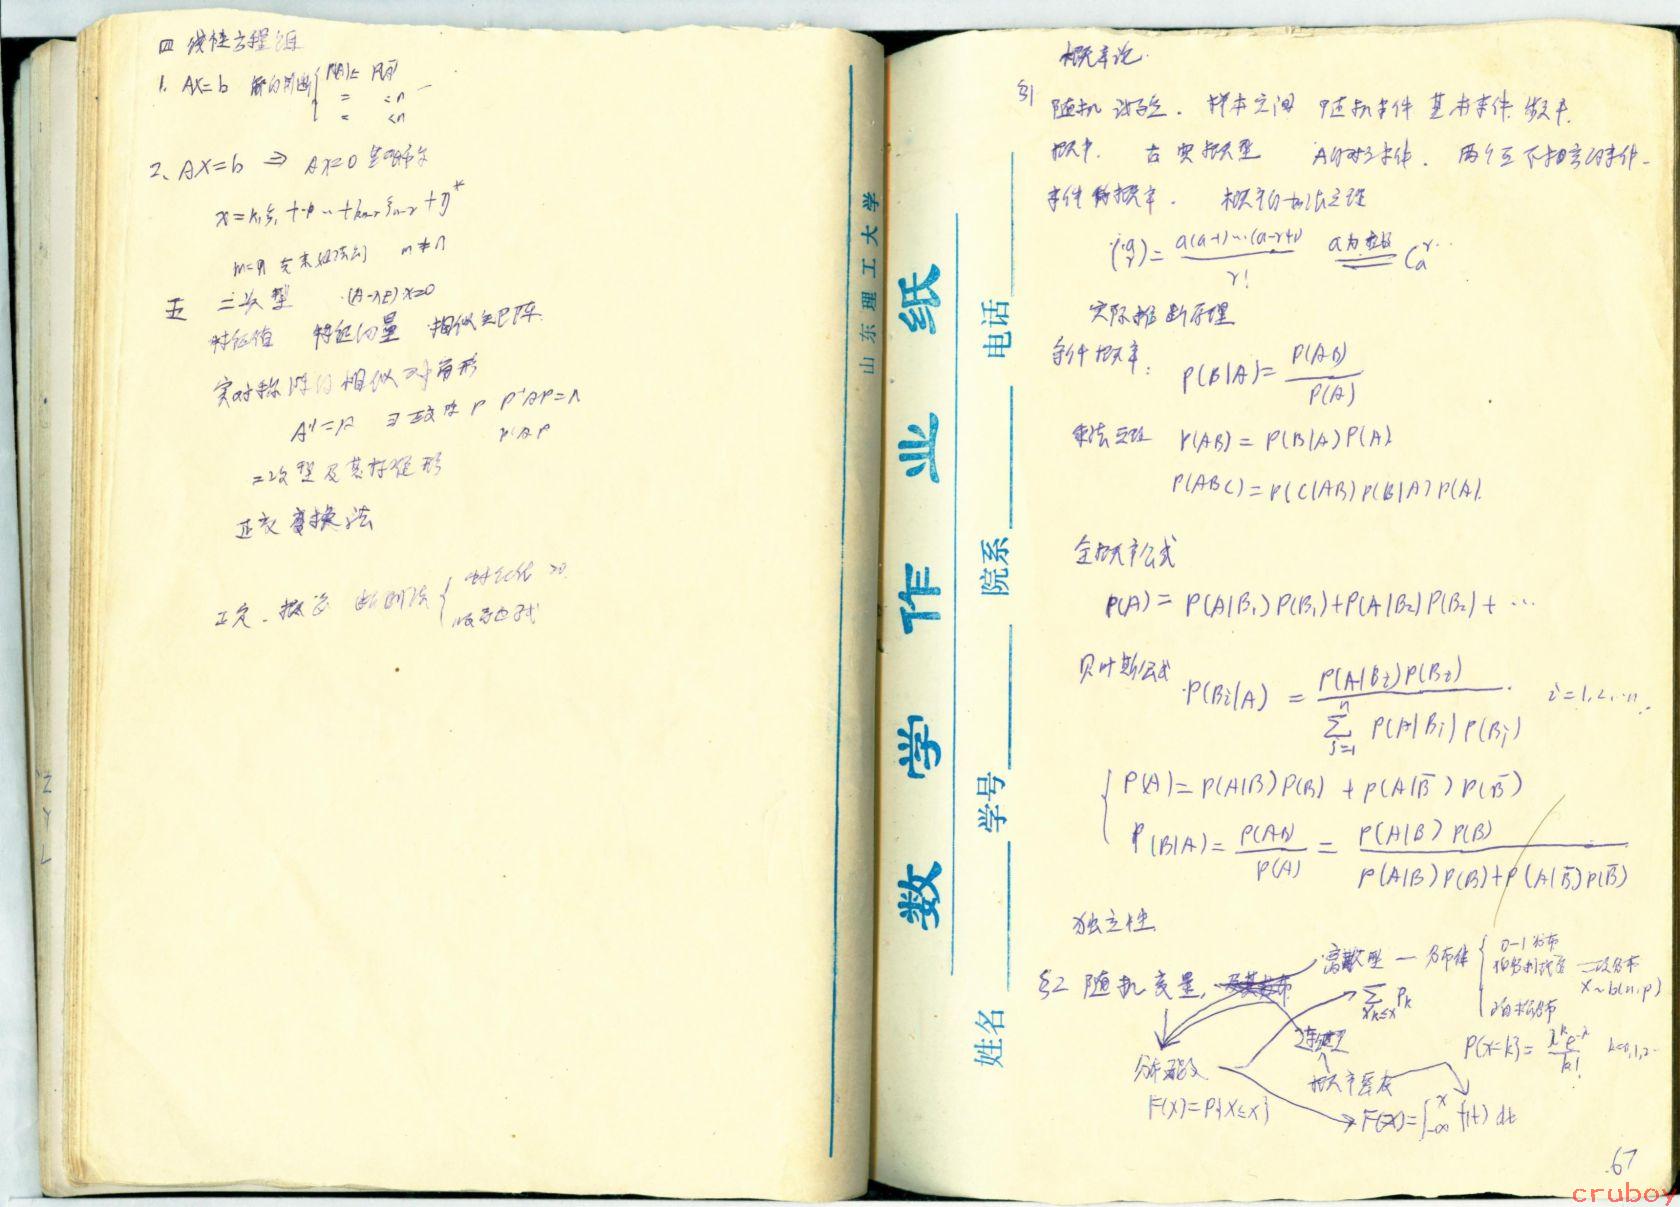 四 线性方程组
1. AX=b 解的判断 { R(A)≤ R(Ā)
= <n
= <n
2. AX=b ⇒ AX=0 基础解系
x=k₁ξ₁+…+kₙ₋ᵣξₙ₋ᵣ+η*
m=n m≠n
五 二次型 (A-λE)x=0
特征值 特征向量 相似矩阵
实对称阵的相似对角形
A'=A ∃正交阵P P⁻¹AP=Λ
P'AP
二次型及其标准形
正交变换法
正定. 判别法 { 特征值 >0
山东理工大学
数学作业纸
姓名 学号 院系 电话
概率论.
§1 随机试验. 样本空间 随机事件 基本事件. 频率.
概率. 古典概型 A的对立事件. 两个互不相容的事件.
事件的概率. 概率的加法定理
(a r)= a(a-1)…(a-r+1) / r! a为整数 Cₐʳ
实际推断原理
条件概率: P(B|A)= P(AB) / P(A)
乘法定理 P(AB)=P(B|A)P(A)
P(ABC)=P(C|AB)P(B|A)P(A).
全概率公式
P(A)= P(A|B₁)P(B₁)+P(A|B₂)P(B₂)+…
贝叶斯公式 P(Bᵢ|A) = P(A|Bᵢ)P(Bᵢ) / ∑ⱼ₌₁ⁿ P(A|Bⱼ)P(Bⱼ) i=1,2,…n.
{ P(A)=P(A|B)P(B)+P(A|B̄)P(B̄)
P(B|A)= P(AB) / P(A) = P(A|B)P(B) / P(A|B)P(B)+P(A|B̄)P(B̄)
独立性
§2 随机变量,
离散型 — 分布律 { 0-1分布
伯努利试验 二项分布
X~b(n,p)
泊松分布
P{X=k}= λᵏe^-λ / k! k=0,1,2…
∑ xₖ≤x Pₖ
连续型
概率密度
分布函数
F(x)=P{X≤x}
F(x)=∫₋∞ˣ f(t) dt
67
cruboy